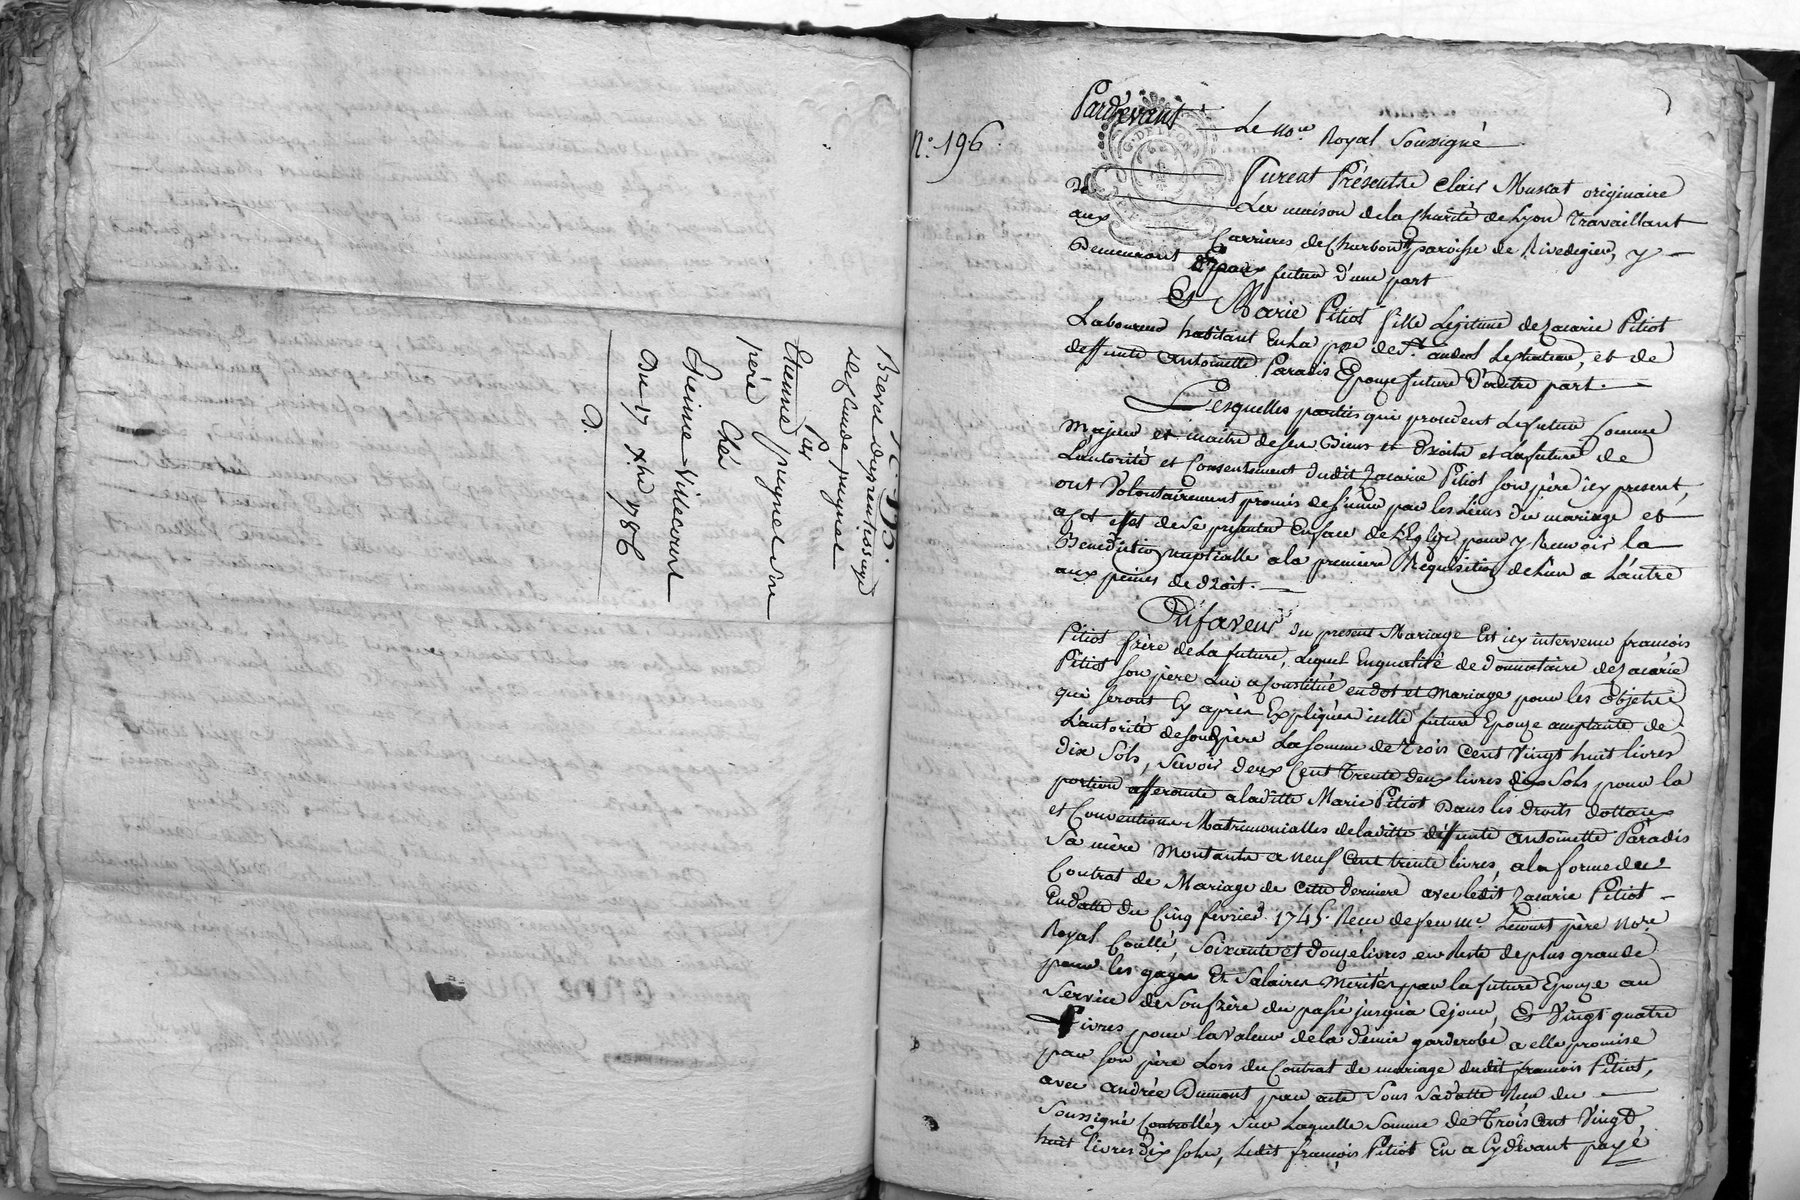 Brevet d'aprentissage
de Claude peyne
Par
Etienne peyne son
père
Chés
Etienne Villecourt
Du 17 xbre 1786
N.° 196.
Pardevant Le no.re Royal Soussigné
Furent Présents Clair Muscat originaire
de La maison de la Charité de Lyon Travaillant
aux Carrieres de Charbon paroisse de Rivedegier, y
Demeurant Epoux futur d'une part
Et Marie Pitiot fille Legitime de Zacarie Pitiot
Laboureur habitant En La p.sse de S.t andéol Lechateau, et de
deffunte Antoinette Paradis Epouze future d'autre part.
Lesquelles parties qui procedent Le futur Comme
Majeur et maitre de ses Biens et Droits et La future de
L'autorité et Consentement dudit Zacarie Pitiot son père icy present,
ont Volontairement promis de s'unir par les Liens du mariage et
a cet effet de se presenter En face de L'Eglise pour y Recevoir la
Benediction nuptialle a la premiere Requisition de L'un a L'autre
aux peines de droit.
En faveur du present Mariage Est icy intervenu françois
Pitiot frère de La future, Lequel En qualité de donnataire de Zacarie
Pitiot son père Lui a Constitué en dot et Mariage pour les objets
qui seront Cy après Expliqués icelle future Epouze acceptante de
L'autorité de son père La Somme de Trois Cent Vingt huit livres
dix Sols, Savoir deux Cent Trente deux livres dix Sols pour la
portion afferante a laditte Marie Pitiot Dans les droits dottaux
et Conventions Matrimonialles de laditte deffunte Antoinette Paradis
Sa mère Montants a neuf Cent trente livres, a la forme du
Contrat de Mariage de Cette Derniere avec ledit Zacarie Pitiot
En datte du Cinq fevrier 1745. Recu de feu M.e Lecourt père No.re
Royal Coullé, Soixante et douze livres en Reste de plus grande
pour les gages Et Salaires Merités par la future Epouze au
Service de Son frère du passé jusqu'à Cejour, Et Vingt quatre
Livres pour la valeur de la demie garderobe a elle promise
par son père Lors du Contrat de mariage dudit françois Pitiot,
avec andrée Dumont par acte Sous Sa datte Recu du
Soussigné Controllé, Sur Laquelle Somme de Trois Cent Vingt
huit livres dix sols, Ledit françois Pitiot En a Cydevant payé